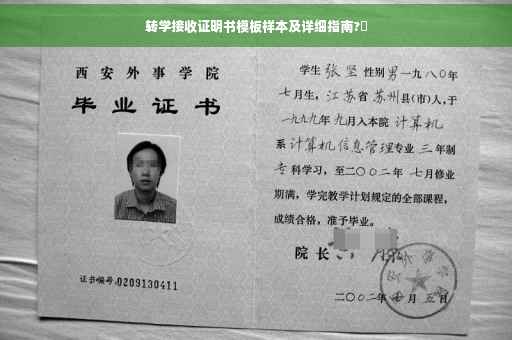 转学接收证明书模板样本及详细指南?
西安外事学院
毕业证书
证书编号:0209130411
学生 张坚 性别 男 一九八〇年
七月生，江苏省 苏州县(市)人，于
一九九九年 九月入本院 计算机
系 计算机信息管理专业 三 年制
专科学习，至二〇〇二年 七月修业
期满，学完教学计划规定的全部课程，
成绩合格，准予毕业。
院长
二〇〇二年 七月 五日